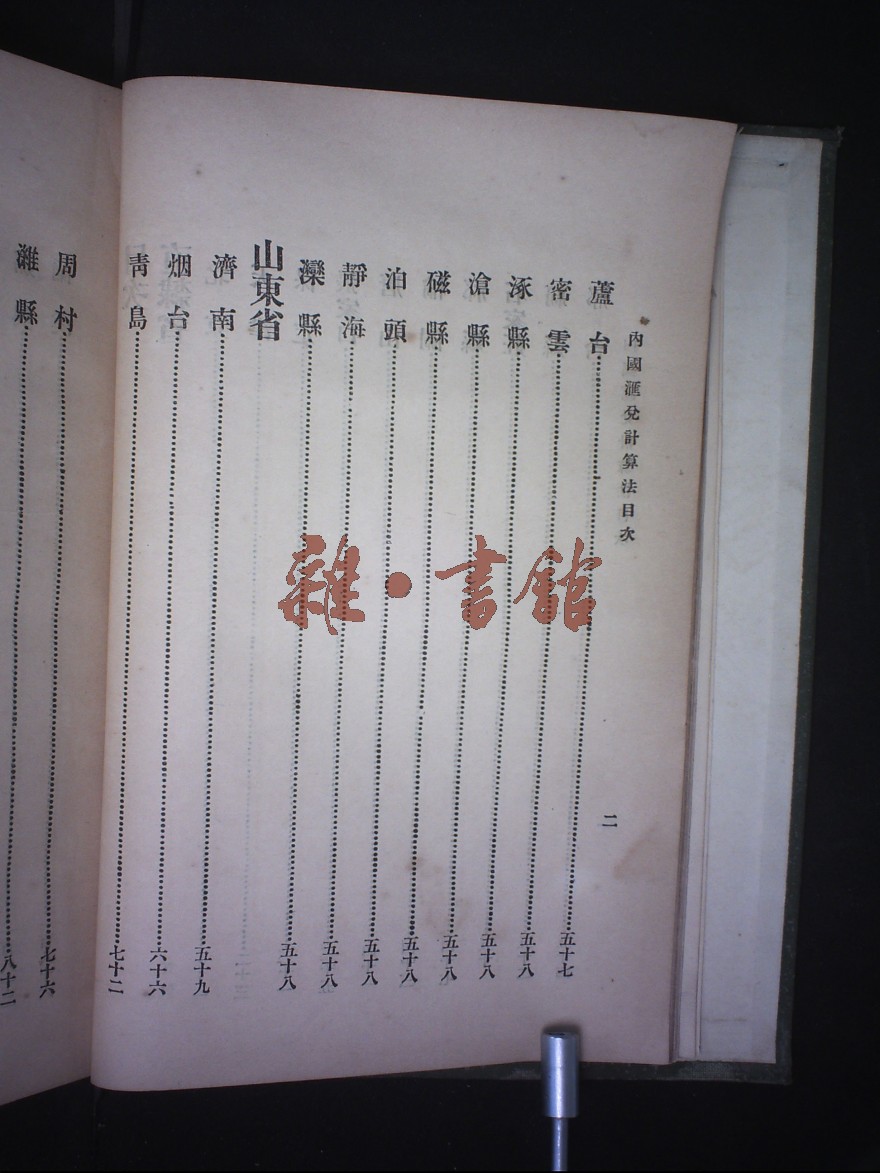 內國滙兌計算法目次
二
蘆台……五十七
密雲……五十八
涿縣……五十八
滄縣……五十八
磁縣……五十八
泊頭……五十八
靜海……五十八
灤縣……五十八
山東省
濟南……五十九
烟台……六十六
靑島……七十二
周村……七十六
濰縣……八十二
雜·書館